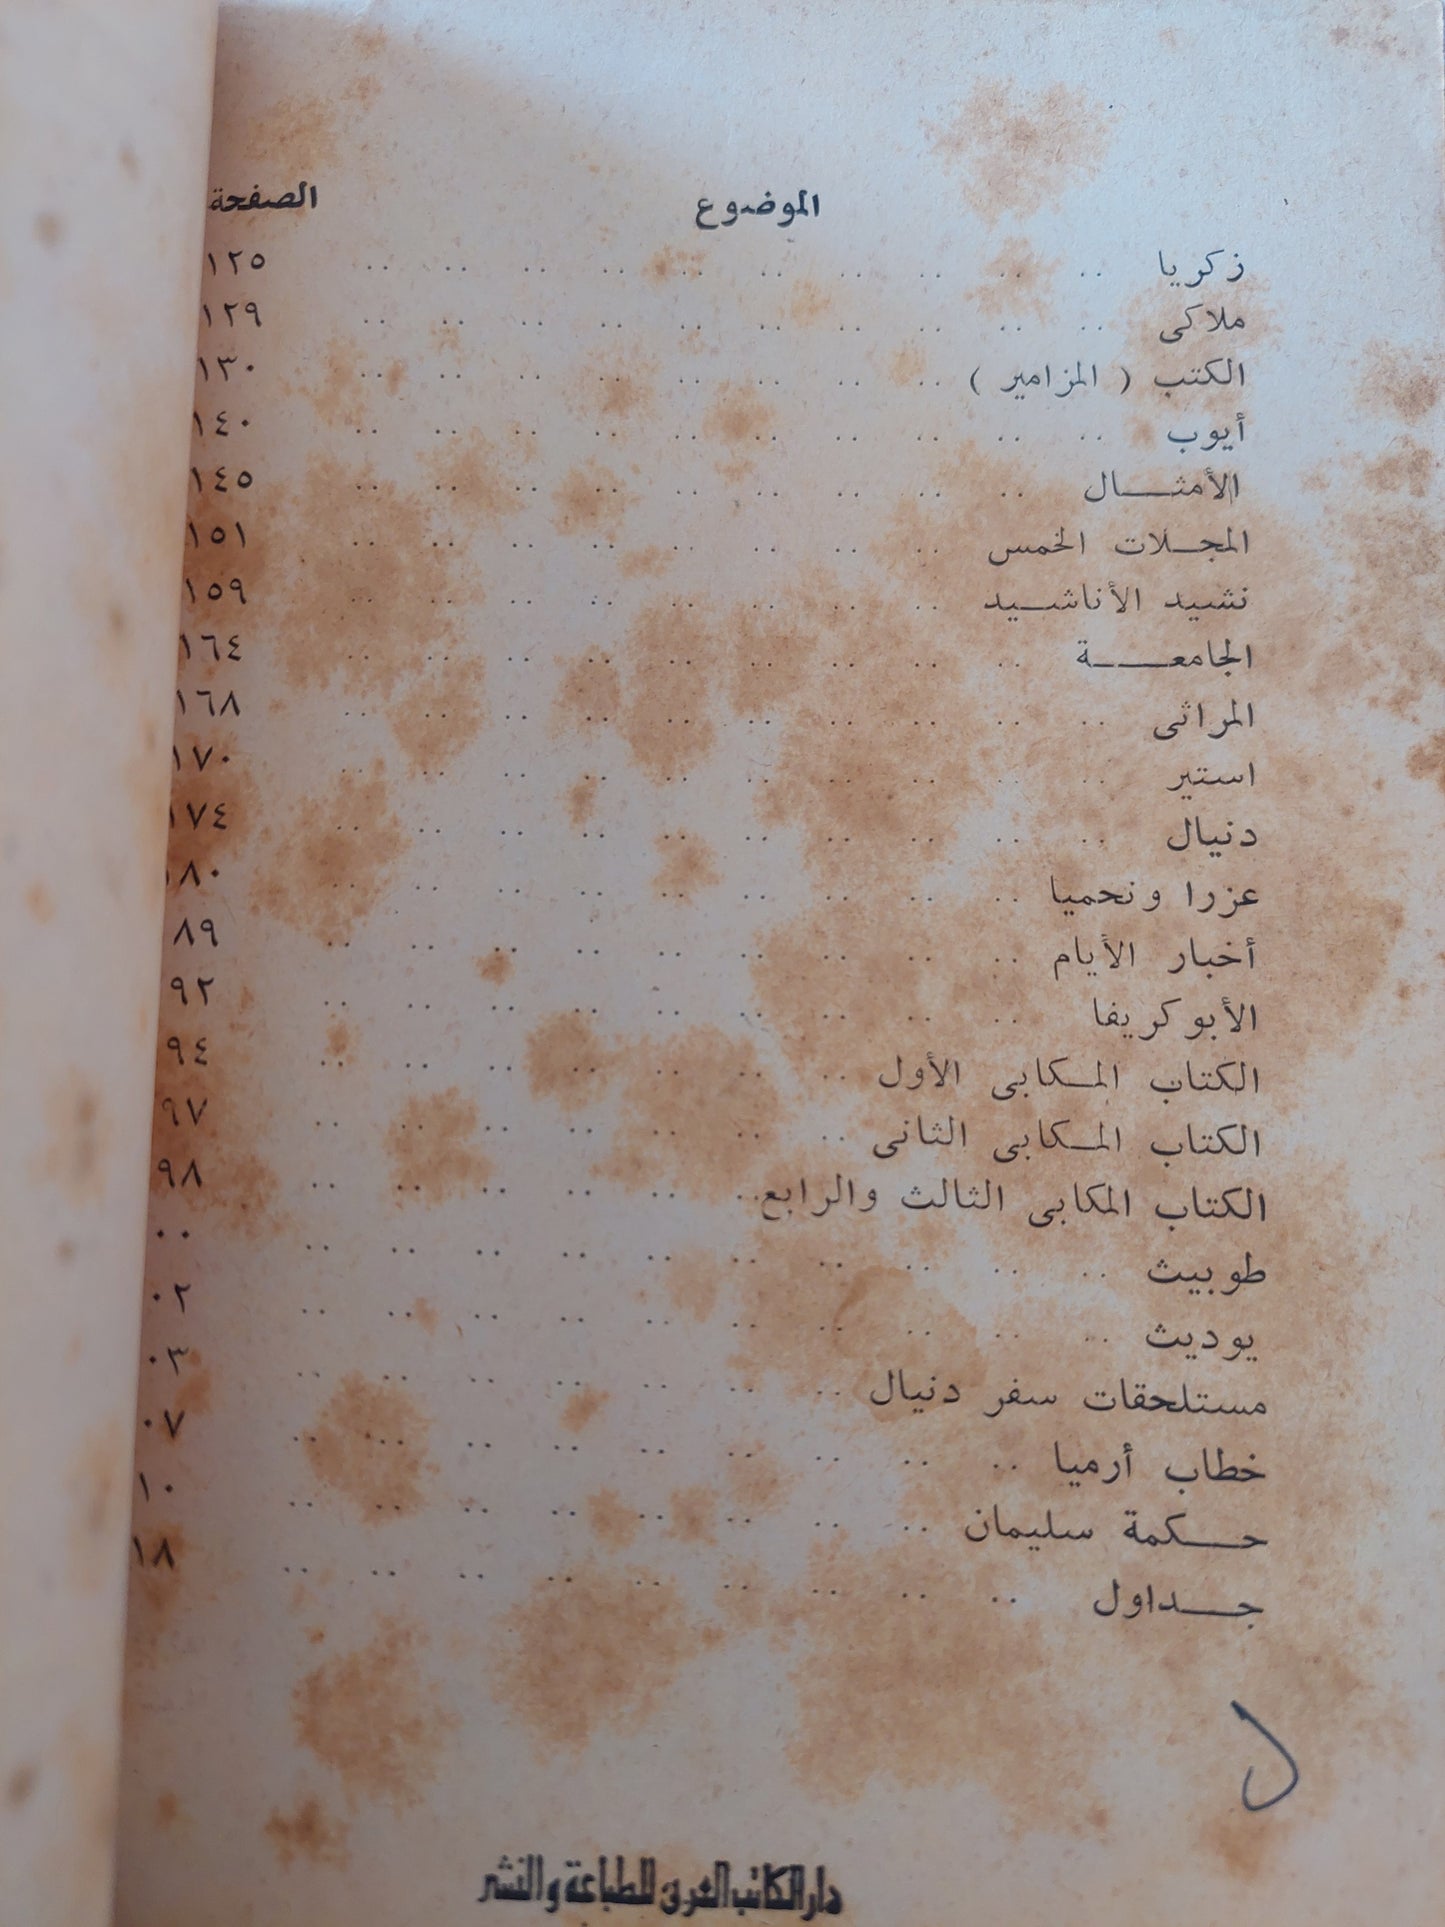 الموضوع الصفحة
زكريا .. .. .. .. .. .. .. .. .. .. ١٢٥
ملاكى .. .. .. .. .. .. .. .. .. .. ١٢٩
الكتب ( المزامير ) .. .. .. .. .. .. .. .. ١٣٠
أيوب .. .. .. .. .. .. .. .. .. .. ١٤٠
الأمثـــال .. .. .. .. .. .. .. .. .. ١٤٥
المجــلات الخمس .. .. .. .. .. .. .. .. ١٥١
نشيد الأناشــيد .. .. .. .. .. .. .. .. ١٥٩
الجامعـــــة .. .. .. .. .. .. .. .. .. ١٦٤
المراثى .. .. .. .. .. .. .. .. .. .. ١٦٨
استير .. .. .. .. .. .. .. .. .. .. ١٧٠
دنيال .. .. .. .. .. .. .. .. .. .. ١٧٤
عزرا ونحميا .. .. .. .. .. .. .. .. .. ١٨٠
أخبار الأيام .. .. .. .. .. .. .. .. .. ٨٩
الأبوكريفا .. .. .. .. .. .. .. .. .. ٩٢
الكتاب المـكابى الأول .. .. .. .. .. .. .. ٩٤
الكتاب المـكابى الثانى .. .. .. .. .. .. .. ٩٧
الكتاب المكابى الثالث والرابع .. .. .. .. .. .. ٩٨
طوبيث .. .. .. .. .. .. .. .. .. .. ٠٠
يوديث .. .. .. .. .. .. .. .. .. .. ٠٢
مستلحقات سفر دنيال .. .. .. .. .. .. .. ٠٣
خطاب أرميا .. .. .. .. .. .. .. .. .. ٠٧
حــكمة سليمان .. .. .. .. .. .. .. .. ١٠
جــداول .. .. .. .. .. .. .. .. .. ١٨
دار الكاتب العربى للطباعة والنشر